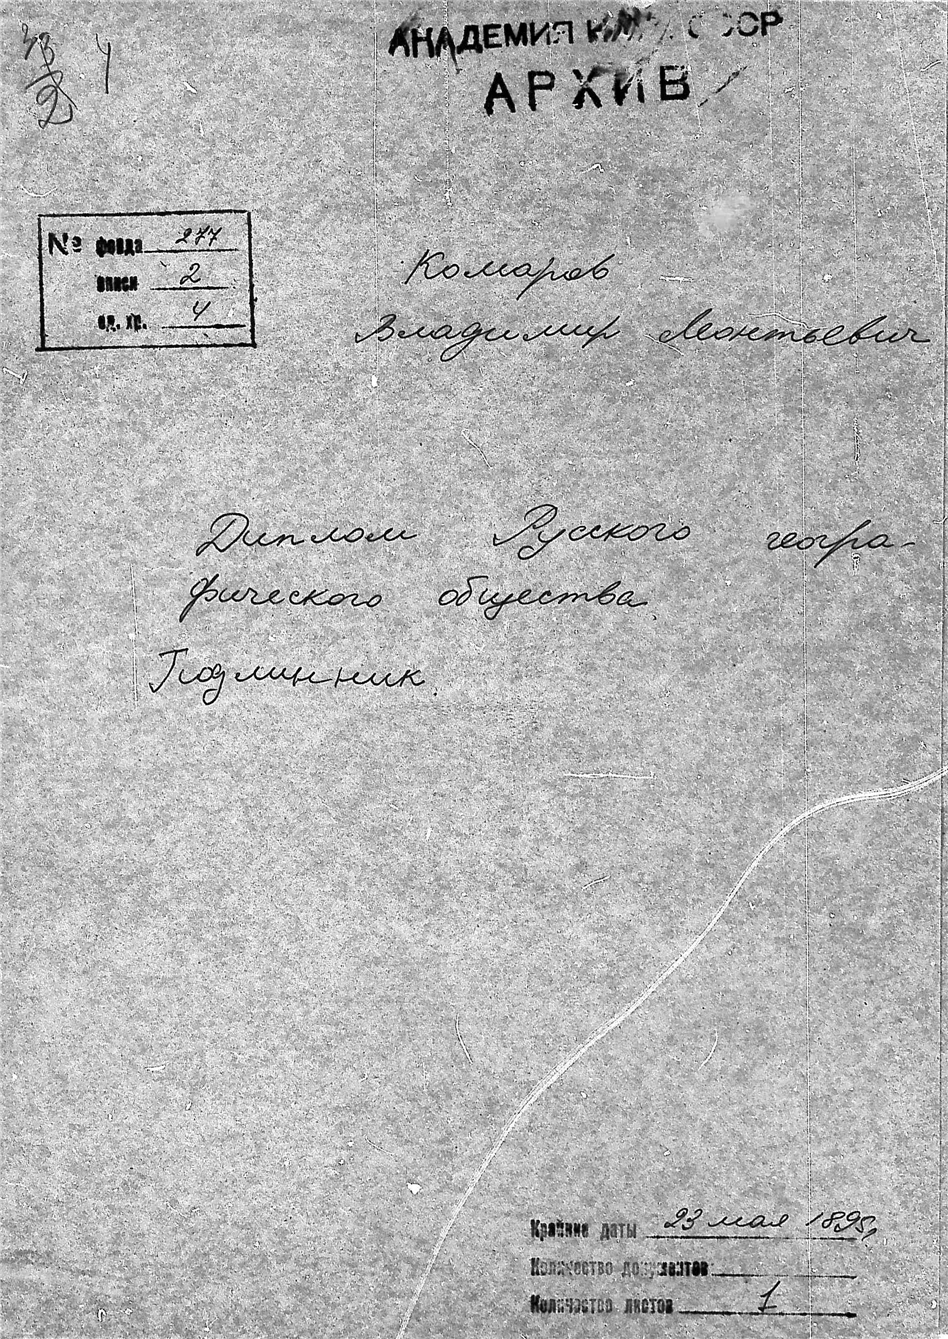 АКАДЕМИЯ НАУК СССР
АРХИВ
4
№ фонда 277
описи 2
ед. хр. 4
Комаров
Владимир Леонтьевич
Диплом Русского геогра-
фического общества.
Подлинник.
Крайние даты 23 мая 1895г.
Количество документов
Количество листов 1